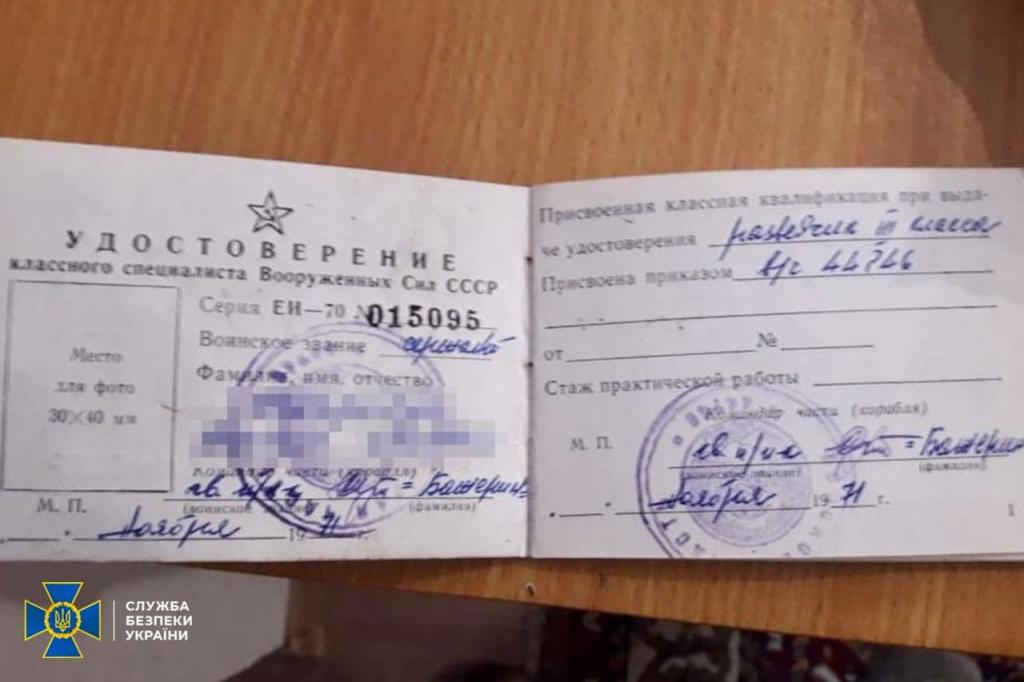 УДОСТОВЕРЕНИЕ
классного специалиста Вооруженных Сил СССР
Серия ЕИ—70 № 015095
Воинское звание сержант
Фамилия, имя, отчество
Место
для фото
30×40 мм
Командир части (корабля)
гв. п/п-к = Бажерин
М. П. (воинское звание) (фамилия)
ноября 1971 г.
Присвоенная классная квалификация при выда-
че удостоверения разведчик III класса
Присвоена приказом в/ч 44746
от № 
Стаж практической работы
Командир части (корабля)
М. П.
(воинское звание) (фамилия)
ноября 1971 г.
1
СЛУЖБА
БЕЗПЕКИ
УКРАЇНИ